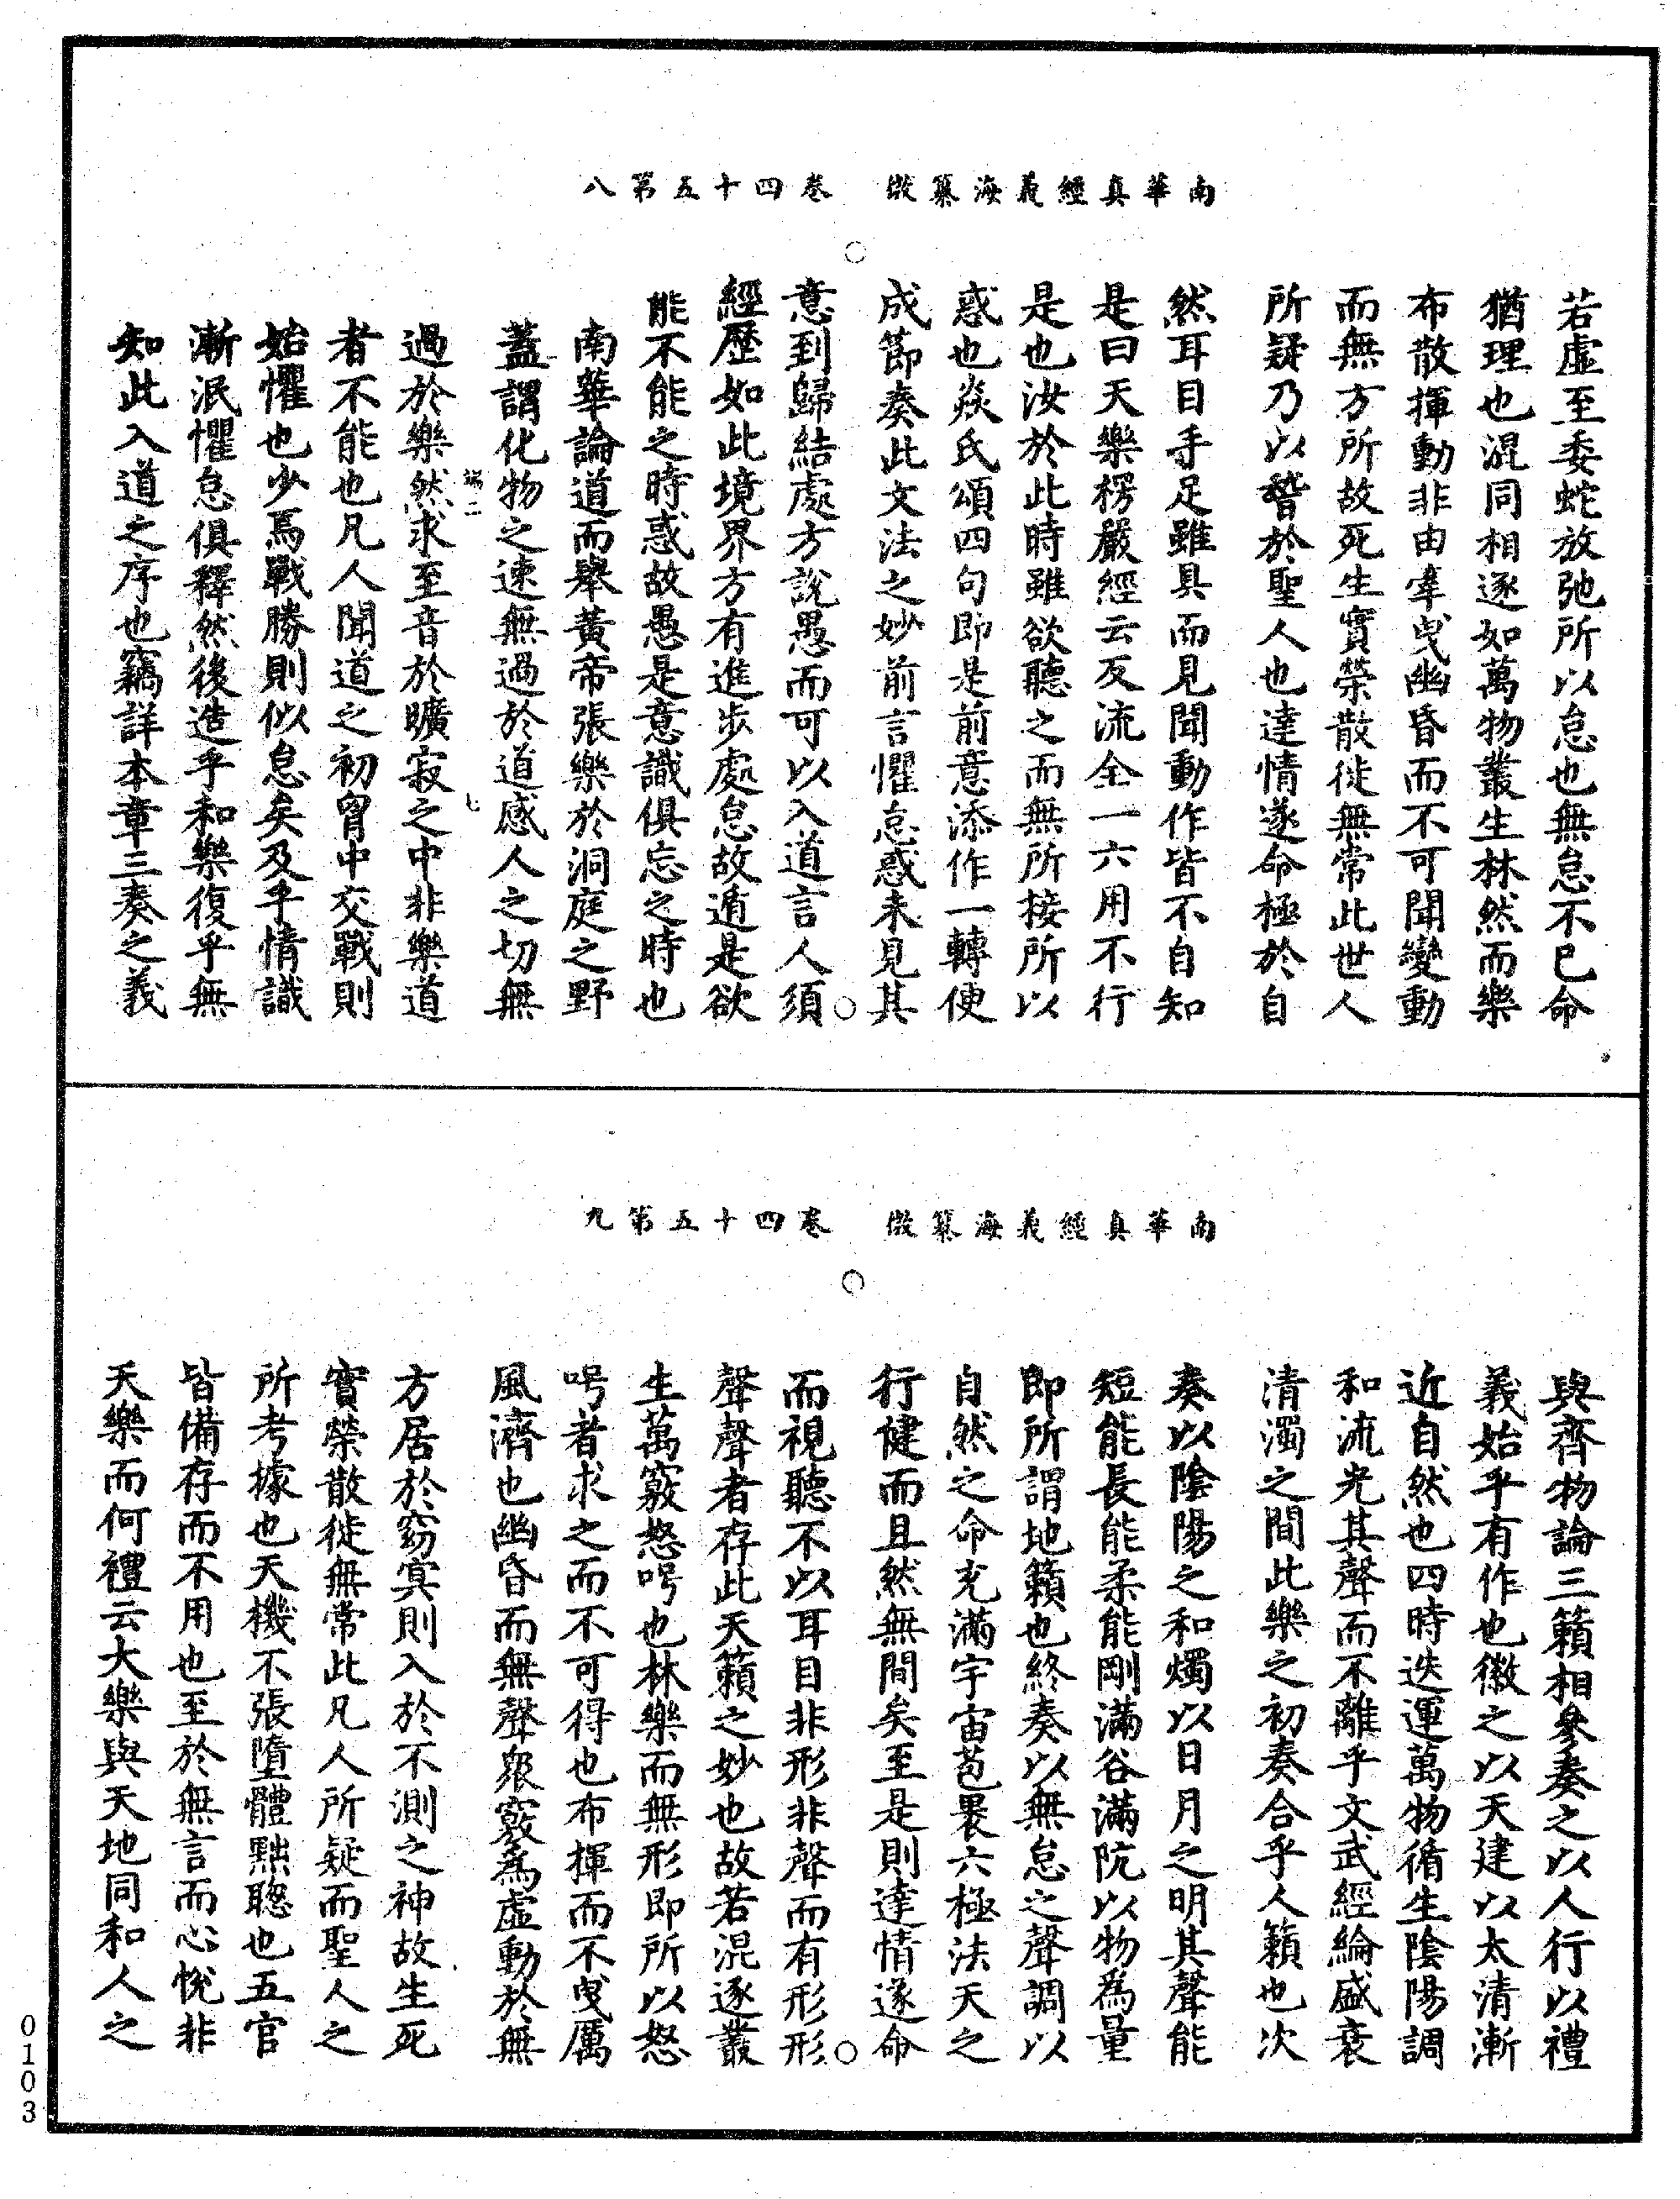 南華真經義海纂微　卷四十五第八
若虛至委蛇放弛所以怠也無怠不已命
猶理也混同相逐如萬物叢生林然而樂
布散揮動非由牽曳幽昏而不可聞變動
而無方所故死生實榮散徙無常此世人
所疑乃以稽於聖人也達情遂命極於自
然耳目手足雖具而見聞動作皆不自知
是曰天樂楞嚴經云反流全一六用不行
是也汝於此時雖欲聽之而無所接所以
惑也焱氏頌四句即是前意添作一轉便
成節奏此文法之妙前言懼怠惑未見其
意到歸結處方說愚而可以入道言人須
經歷如此境界方有進步處怠故遁是欲
能不能之時惑故愚是意識俱忘之時也
南華論道而舉黃帝張樂於洞庭之野
蓋謂化物之速無過於道感人之切無
過於樂然求至音於曠寂之中非樂道
者不能也凡人聞道之初胷中交戰則
始懼也少焉戰勝則似怠矣及乎情識
漸泯懼怠俱釋然後造乎和樂復乎無
知此入道之序也竊詳本章三奏之義
南華真經義海纂微　卷四十五第九
與齊物論三籟相參奏之以人行以禮
義始乎有作也徽之以天建以太清漸
近自然也四時迭運萬物循生陰陽調
和流光其聲而不離乎文武經綸盛衰
清濁之間此樂之初奏合乎人籟也次
奏以陰陽之和燭以日月之明其聲能
短能長能柔能剛滿谷滿阬以物為量
即所謂地籟也終奏以無怠之聲調以
自然之命充滿宇宙苞褁六極法天之
行健而且然無間矣至是則達情遂命
而視聽不以耳目非形非聲而有形形
聲聲者存此天籟之妙也故若混逐叢
生萬竅怒呺也林樂而無形即所以怒
呺者求之而不可得也布揮而不曳厲
風濟也幽昏而無聲衆竅為虛動於無
方居於窈冥則入於不測之神故生死
實榮散徙無常此凡人所疑而聖人之
所考據也天機不張墮體黜聰也五官
皆備存而不用也至於無言而心悅非
天樂而何禮云大樂與天地同和人之
0103